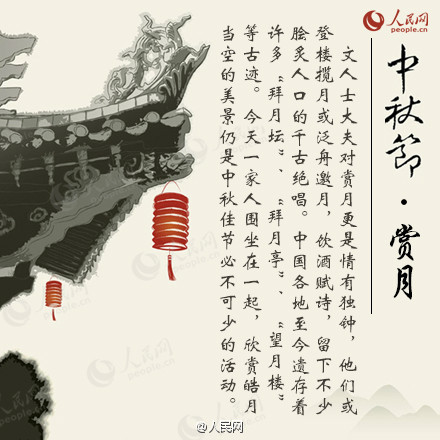 人民网
people.cn
中秋節·赏月
文人士大夫对赏月更是情有独钟，他们或
登楼揽月或泛舟邀月，饮酒赋诗，留下不少
脍炙人口的千古绝唱。中国各地至今遗存着
许多“拜月坛”、“拜月亭”、“望月楼”
等古迹。今天一家人围坐在一起，欣赏皓月
当空的美景仍是中秋佳节必不可少的活动。
人民网
people.cn
@人民网